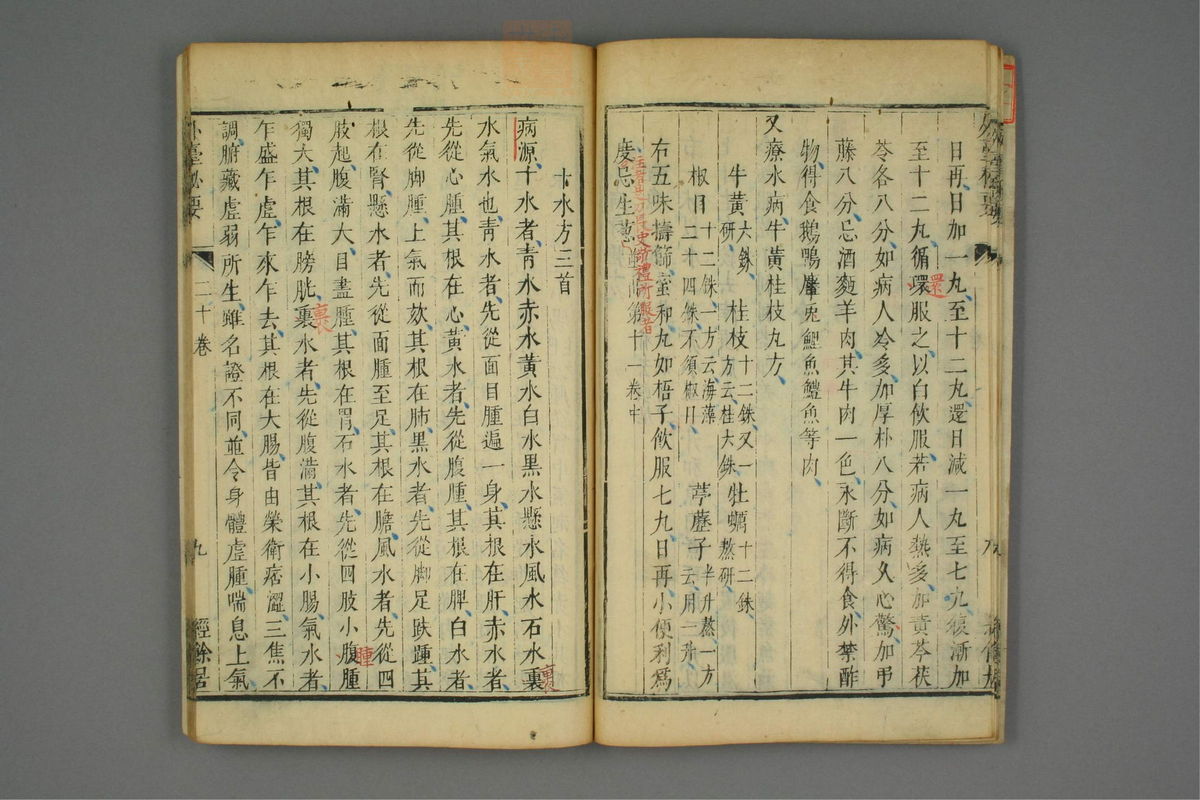 日再日加一丸至十二丸還日減一丸至七丸復漸加
至十二丸循環服之以白飲服若病人熱多加黃芩茯
還
苓各八分如病人冷多加厚朴八分如病久心驚加弔
藤八分忌酒麪羊肉其牛肉一色永斷不得食外禁酢
物得食鵝鴨麞兎鯉魚鱧魚等肉
又療水病牛黃桂枝丸方
牛黃六銖研 桂枝十二銖又一方云桂六銖 牡蠣十二銖熬研
椒目十二銖一方云海藻二十四銖不須椒目 葶藶子半升熬一方云用一升
右五味擣篩蜜和丸如梧子飲服七丸日再小便利爲
度忌生葱 第十一卷中
十水方三首
病源十水者青水赤水黃水白水黑水懸水風水石水裏
裏
水氣水也青水者先從面目腫遍一身其根在肝赤水者
先從心腫其根在心黃水者先從腹腫其根在脾白水者
先從脚腫上氣而欬其根在肺黑水者先從脚足趺踵其
根在腎懸水者先從面腫至足其根在膽風水者先從四
肢起腹滿大目盡腫其根在胃石水者先從四肢小腹腫
腫
獨大其根在膀胱裏水者先從腹滿其根在小腸氣水者
裏
乍盛乍虛乍來乍去其根在大腸皆由榮衛痞澀三焦不
調腑藏虛弱所生雖名證不同並令身體虛腫喘息上氣
外臺秘要 二十卷 九 經餘居